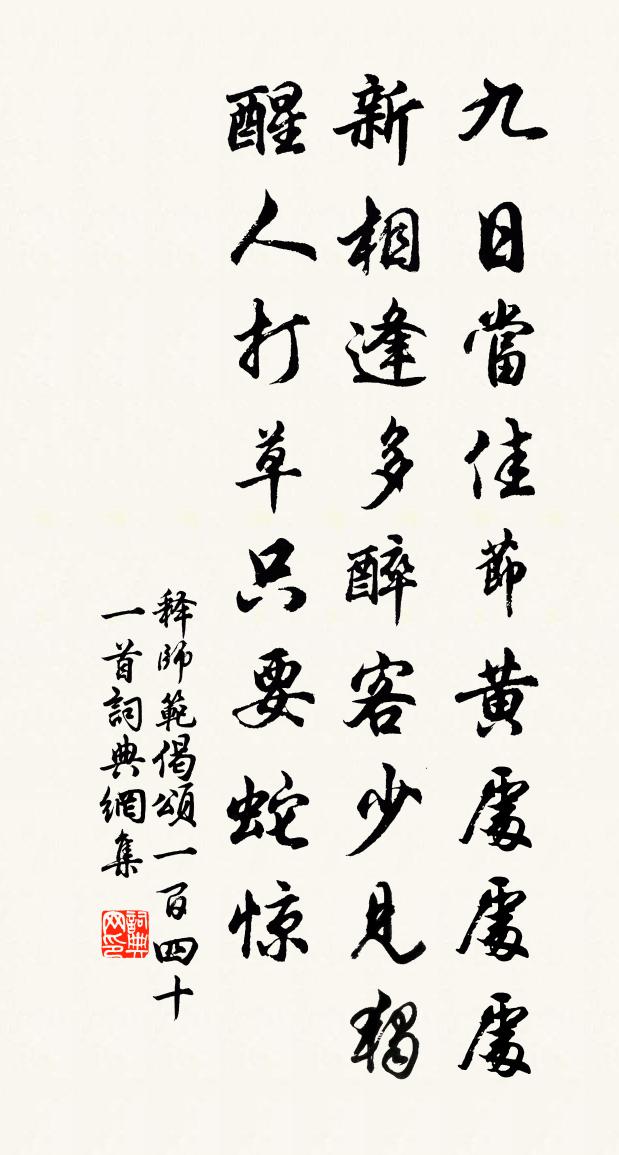 九日當佳節黄處處處
新相逢多醉客少見獨
醒人打草只要蛇惊
释師範偈頌一百四十
一首詞典網集
詞典网印